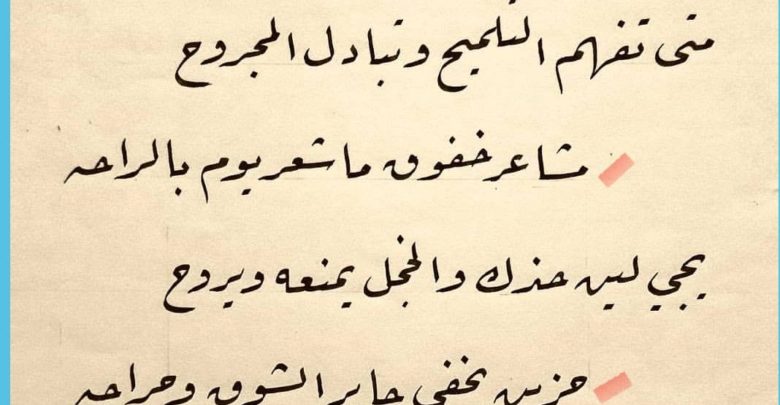 متى تفهم التلميح وتبادل المجروح
مشاعر خفوق ما شعر يوم بالراحه
يجي لين حدك والخجل يمنعه ويروح
حزين يخفي جاير الشوق وجراحه